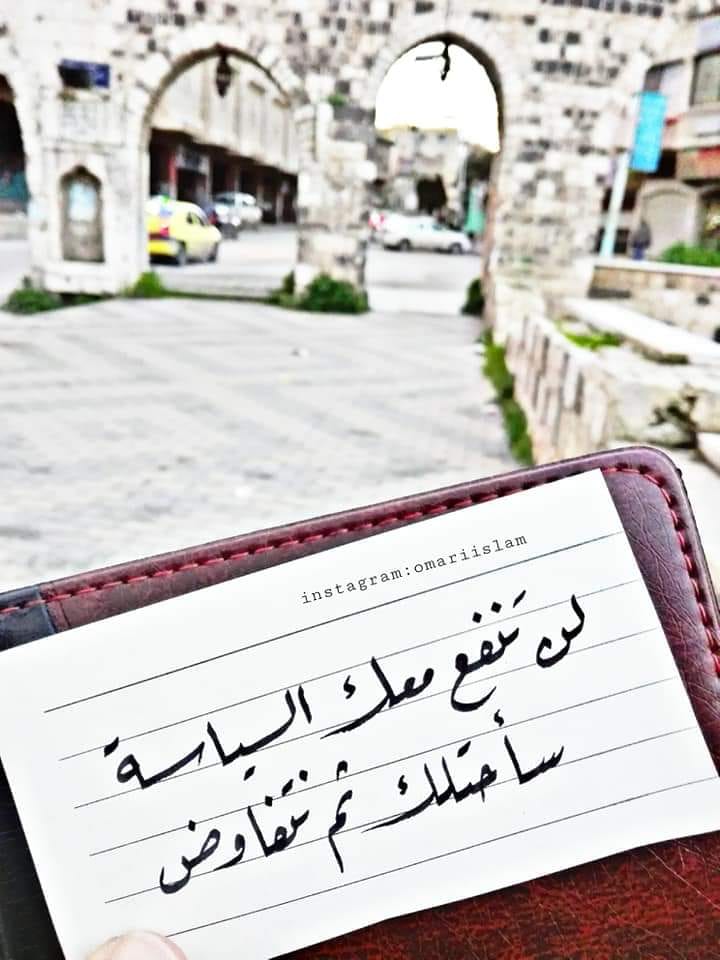 instagram:omariislam
لن تنفع معك السياسة
سأحتلك ثم نتفاوض